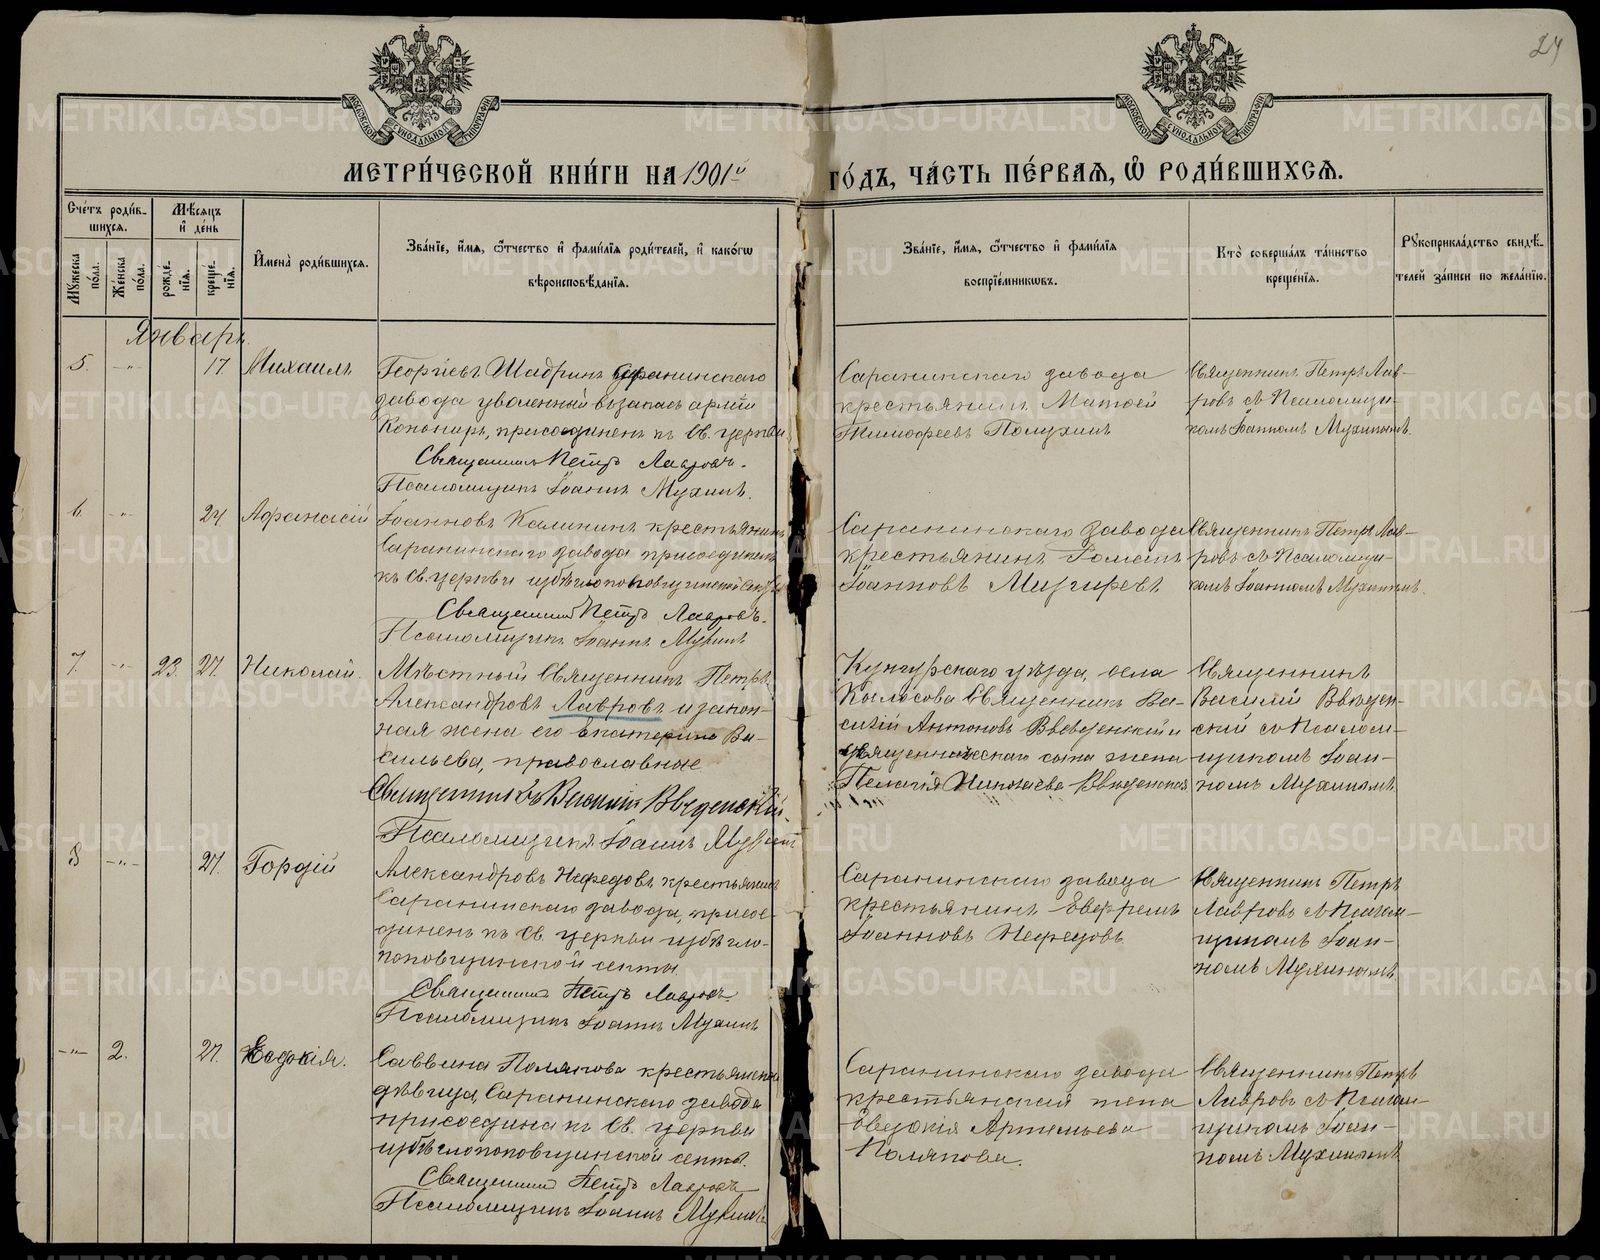 24
МОСКОВСКОЙ СѴНОДАЛЬНОЙ ТИПОГРАФІИ
МОСКОВСКОЙ СѴНОДАЛЬНОЙ ТИПОГРАФІИ
МЕТРИ́ЧЕСКОЙ КНИ́ГИ НА 1901й ГО́ДЪ, ЧА́СТЬ ПЕ́РВАѦ, Ѡ҆ РОДИ́ВШИХСѦ.
Сче́тъ роди́в-
шихсѧ.
Мꙋ́жеска по́ла.
Же́нска по́ла.
Мѣ́сѧцъ и҆ де́нь
рожде́-нїѧ.
креще́-нїѧ.
И҆мена̀ роди́вшихсѧ.
Зва́нїе, и҆́мѧ, ѻ҆́тчество и҆ фами́лїѧ роди́телей, и҆ како́гѡ
вѣроисповѣ́данїѧ.
Зва́нїе, и҆́мѧ, ѻ҆́тчество и҆ фами́лїѧ
воспрїе́мникѡвъ.
Кто̀ соверша́лъ та́инство
креще́нїѧ.
Рꙋкоприкла́дство свидѣ́-
телей за́писи по жела́нїю.
Январь.
5. -"- 17. Михаилъ
Георгіевъ Шадринъ Саранинскаго
завода уволенный въ запасъ арміи
Канониръ, присоединенъ къ Св. церкви
Священникъ Петръ Лавровъ.
Псаломщикъ Іоаннъ Мухинъ.
Саранинскаго завода
крестьянинъ Матѳей
Тимоѳеевъ Полухинъ
Священникъ Петръ Лав-
ровъ съ Псаломщи-
комъ Іоанномъ Мухинымъ.
6. -"- 24 Аѳанасій
Іоанновъ Калининъ крестьянинъ
Саранинскаго завода присоединенъ
къ Св. церкви изъ бѣглопоповщинской секты
Священникъ Петръ Лавровъ.
Псаломщикъ Іоаннъ Мухинъ
Саранинскаго завода
крестьянинъ Романъ
Іоанновъ
Священникъ Петръ Лав-
ровъ съ Псаломщи-
комъ Іоанномъ Мухинымъ.
7. -"- 23. 27. Николай.
Мѣстный Священникъ Петръ
Александровъ Лавровъ и закон-
ная жена его Екатерина Ва-
сильева, православные
Священникъ Василій Введенскій.
Псаломщикъ Іоаннъ Мухинъ
Кунгурскаго уѣзда, села
Кыласова Священникъ Ва-
силій Антоновъ Введенскій и
священническаго сына жена
Пелагія Николаева Введенская
Священникъ
Василій Введен-
скій съ Псалом-
щикомъ Іоан-
номъ Мухинымъ.
8 -"- 27. Гордій
Александровъ Нефедовъ крестьянинъ
Саранинскаго завода, присое-
диненъ къ Св. церкви изъ бѣгло-
поповщинской секты
Священникъ Петръ Лавровъ.
Псаломщикъ Іоаннъ Мухинъ
Саранинскаго завода
крестьянинъ Евфремъ
Іоанновъ Нефедовъ
Священникъ Петръ
Лавровъ съ Псалом-
щикомъ Іоан-
номъ Мухинымъ.
-"- 2. 27. Евдокія.
Саввина Полякова крестьянская
дѣвица, Саранинскаго завода
присоединена къ Св. церкви
изъ бѣглопоповщинской секты.
Священникъ Петръ Лавровъ
Псаломщикъ Іоаннъ Мухинъ
Саранинскаго завода
крестьянская жена
Евдокія Артемьева
Полякова.
Священникъ Петръ
Лавровъ съ Псалом-
щикомъ Іоан-
номъ Мухинымъ
METRIKI.GASO-URAL.RU